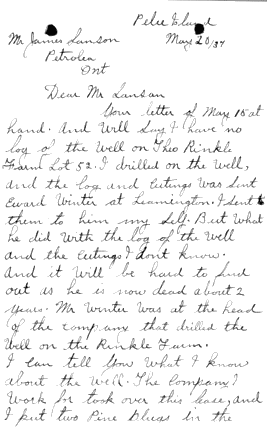 Pelee Island
Mr James Sanson May 20/37
Petrolea
Ont
Dear Mr Sanson
Your letter of May 15 at
hand. And Will Say I have no
log of the Well on Theo Rinkle
Farm Lot 52. I drilled on the Well,
and the log and cutings Was Sent
Edward Winter at Leamington. I Sent
them to him my Self. But What
he did With the log of the Well
and the cutings I dont know.
And it Will be hard to find
out as he is now dead about 2
years. Mr Winter Was at the head
of the company that drilled the
Well on the Rinkle Farm.
I can tell You What I know
about the Well. The Company I
Work for took over this lease, and
I put two Pine Plugs in the